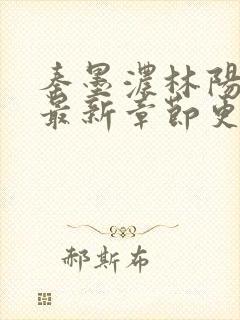 秦墨濃林陽
最新章節更
郝斯布